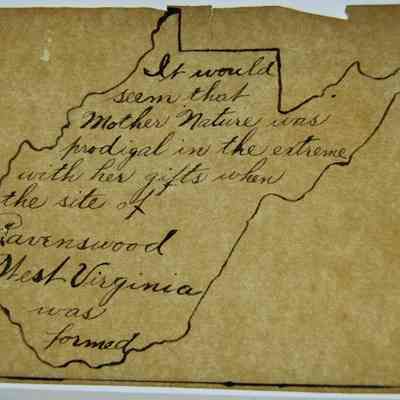 It would
seem that
Mother Nature was
prodigal in the extreme
with her gifts when
the site of
Ravenswood
West Virginia
was
formed